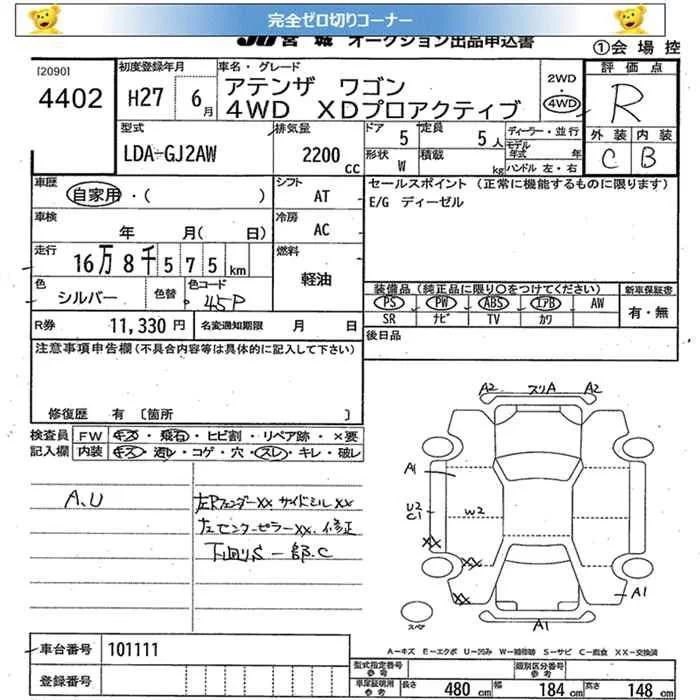 完全ゼロ切りコーナー
JU 宮城 オークション出品申込書
①会場控
[2090]
4402
初度登録年月
H27 6月
車名・グレード
アテンザ ワゴン
4WD XDプロアクティブ
2WD・4WD
評価点
R
外装 内装
C B
型式
LDA-GJ2AW
排気量
2200 CC
ドア 5
定員 5人
形状 W
積載 kg
ディーラー・並行
モデル年式 年
ハンドル 左・右
車歴
自家用・( )
シフト AT
セールスポイント (正常に機能するものに限ります)
E/G ディーゼル
車検 年 月( 日)
冷房 AC
走行 16万8千575km
燃料 軽油
色 シルバー
色替
色コード 45P
装備品(純正品に限り○をつけてください)
PS PW ABS エアB AW
SR ナビ TV カワ
新車保証書
有・無
R券 11,330円
名変通知期限 月 日
後日品
注意事項申告欄(不具合内容等は具体的に記入して下さい)
修復歴 有 〔箇所 〕
検査員記入欄
FW キズ・飛石・ヒビ割・リペア跡・×要
内装 キズ・汚レ・コゲ・穴・スレ・キレ・破レ
A.U
左Rフェンダーxx サイドシルxx
左センターピラーxx.修正
下回りS 一部.C
A2 スリA A2
A1
U2
C1
W2
XX
XX
XX
A1
A1
スペア
A-キズ E-エクボ U-凹み W-補修跡 S-サビ C-腐食 XX-交換済
車台番号 101111
登録番号
型式指定番号 参考
類別区分番号 参考
車庫証明用 参考
長さ 480cm 幅 184cm 高さ 148cm